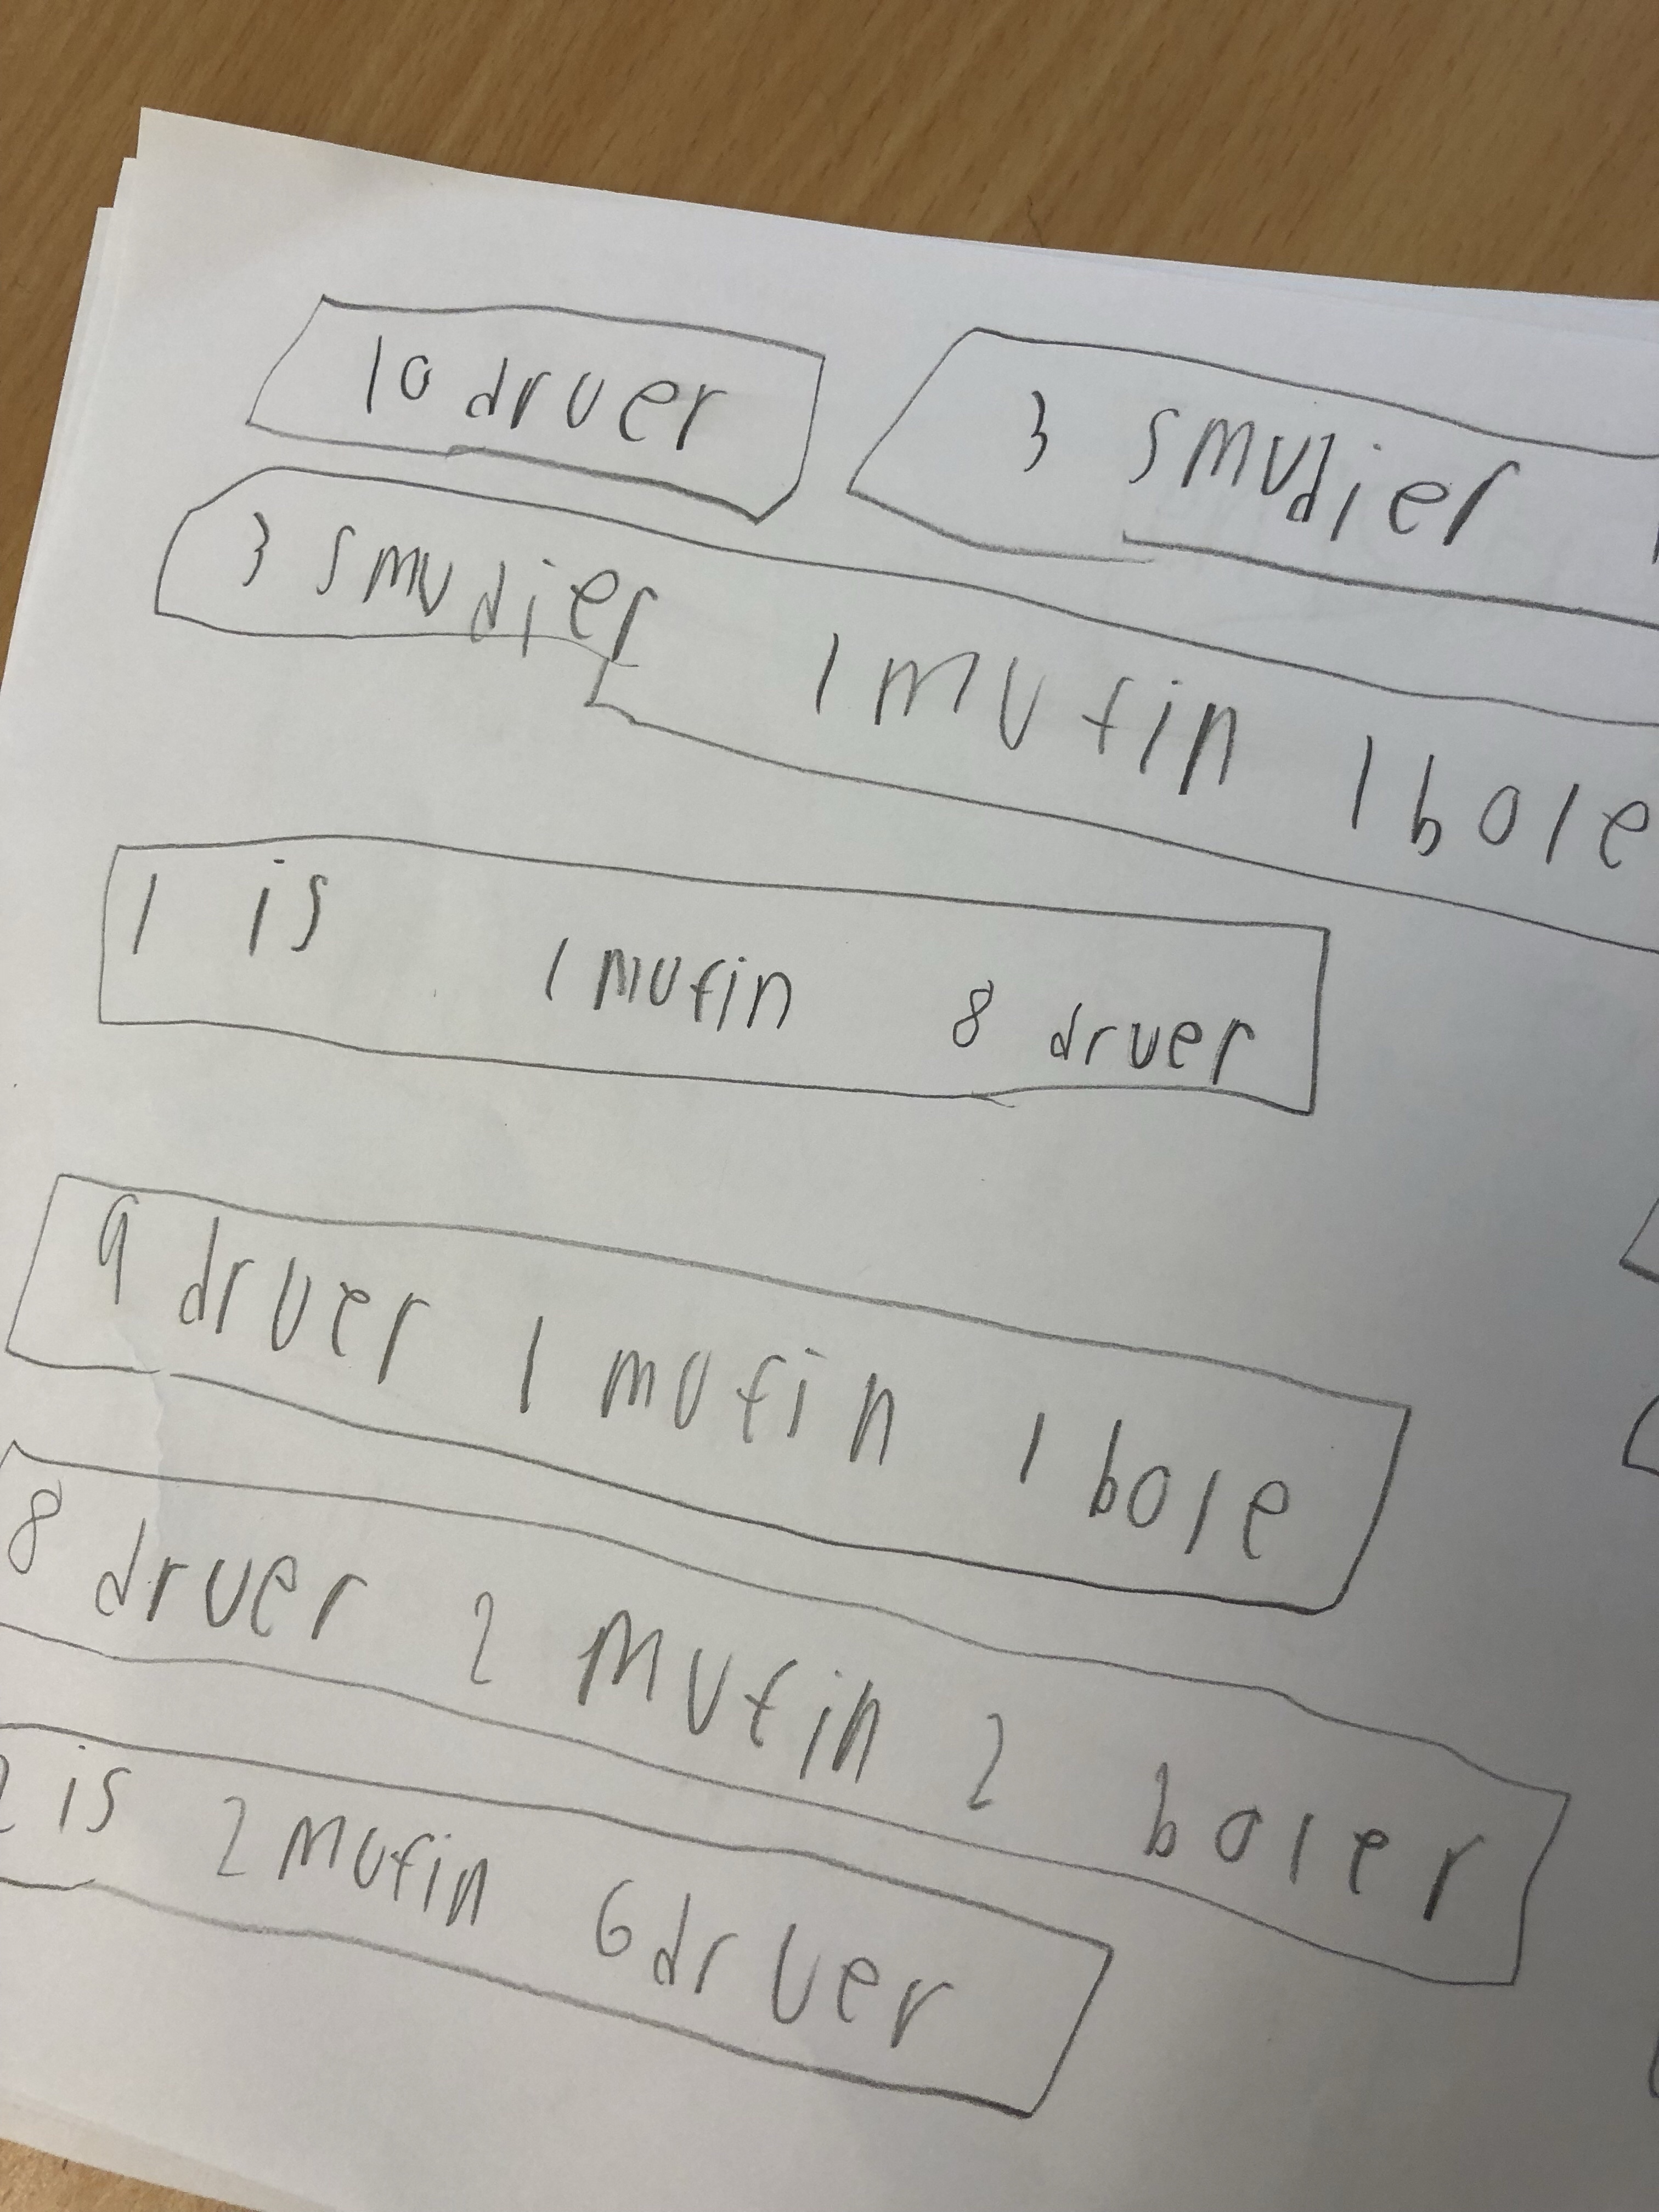 10 druer
3 smudier
3 smudier 1 mufin 1 bole
1 is 1 mufin 8 druer
9 druer 1 mufin 1 bole
8 druer 2 mufin 2 boler
2 is 2 mufin 6 druer